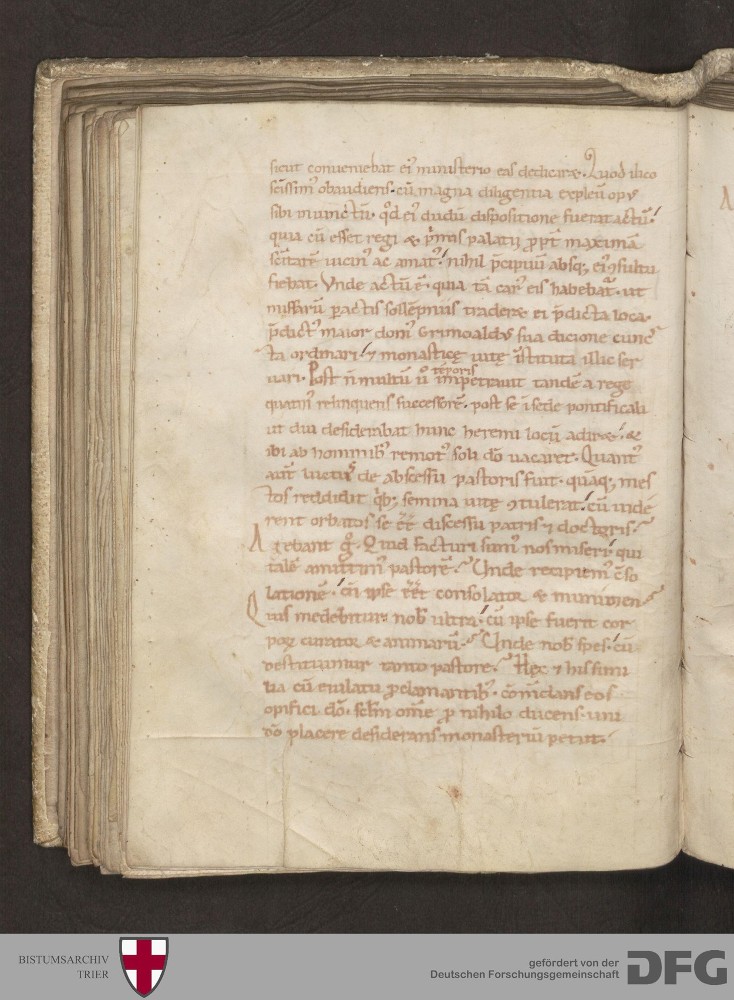 sicut conveniebat ei᷒ ministerio eas dedicaræ. Quod ilico
sc̄issim᷒ obaudiens. cū magna diligentia expleū op᷒
sibi iniunctū. qd̄ ei᷒ dudū dispositione fuerat actū.
quia cū esset regi & p̄mis palatii ꝓpt̄ maximā
sc̄itatē uicin᷒ ac amat᷒. nihil p̄cipuū absq; ei᷒ ꝯsultu
fiebat. Vnde actū ē. quia tā car᷒ eis habebat᷒. ut
missarū ꝑactis sollēpniis traderæ ei p̄dicta loca.
p̄dict᷒ maior dom᷒ Grimoald᷒ sua dicione cunc
ta ordinari. ⁊ monasticę uitę īstituta illic ser
uari. Post ñ multū ū tēporis impetrauit tandē a rege
quatin᷒ relinquens successorē. post se ī sede pontificali
ut diu desiderabat hunc heremi locū adiræ. &
ibi ab hominib᷒ remot᷒ soli dō uacaret. Quant᷒
aūt luctus de abscessu pastoris fuit. quāq; mes
tos reddidit qb; semina uitę ꝯtulerat. cū uidē
rent orbatos se ēē discessu patris ⁊ doctoris.
Agebant g̊. Quid facturi sum᷒ nos miseri. qui
talē amittim᷒ pastorē. Unde recipiem᷒ c̄so
lationē. cū ipse ēēt consolator & munimen
Quis medebitur nob̄ ultra. cū ipse fuerit cor
poꝝ curator & animarū. Unde nob̄ spes. cū
destituamur tanto pastore. Hęc ⁊ his simi
lia cū eiulatu ꝓclamantib᷒. cōm̄dans eos
opifici dō. sclm̄ om̄e ꝓ nihilo ducens. uni
dō placere desiderans monasteriū petiit.
BISTUMSARCHIV
TRIER
gefördert von der
Deutschen Forschungsgemeinschaft
DFG